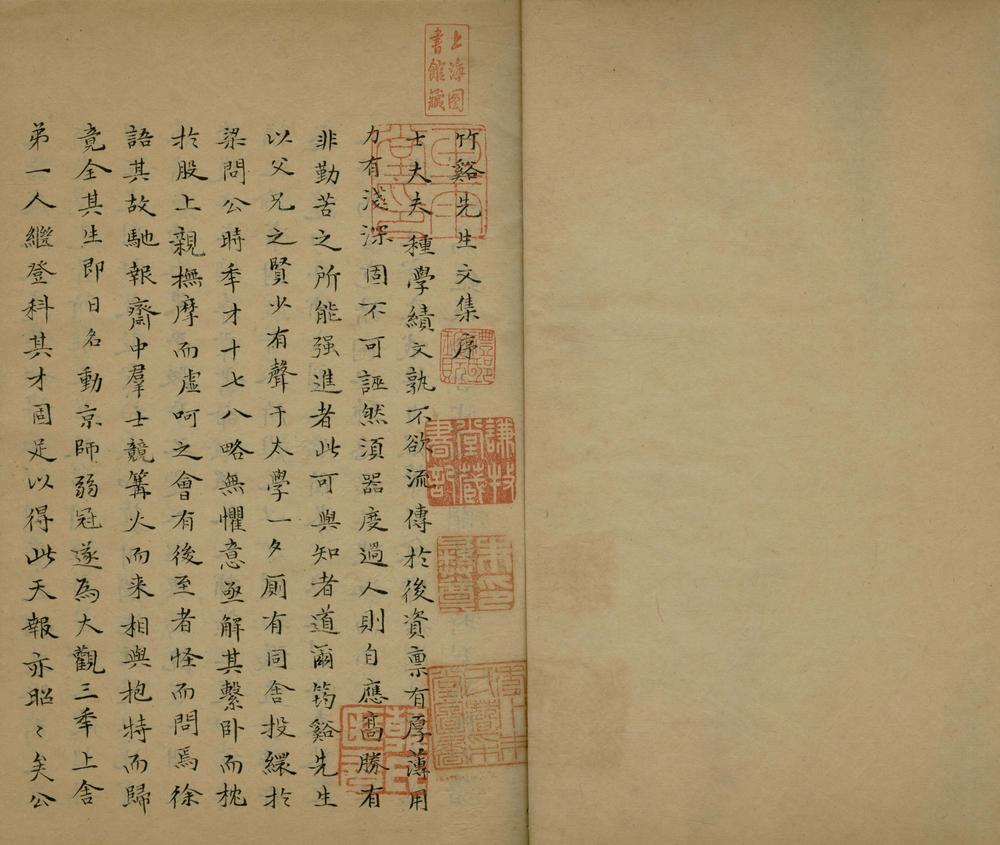 上海圖書館藏
竹谿先生文集序
士大夫種學績文孰不欲流傳於後資稟有厚薄用
力有淺深固不可誣然須器度過人則自應高勝有
非勤苦之所能强進者此可與知者道爾筠谿先生
以父兄之賢少有聲于太學一夕厠有同舍投繯於
梁問公時秊才十七八略無懼意亟解其繫卧而枕
於股上親撫摩而虛呵之會有後至者怪而問焉徐
語其故馳報齋中羣士競篝火而来相與抱持而歸
竟全其生即日名動京師弱冠遂為大觀三秊上舍
弟一人繼登科其才固足以得此天報亦昭〻矣公
禮邸珍玩
謙牧堂藏書記